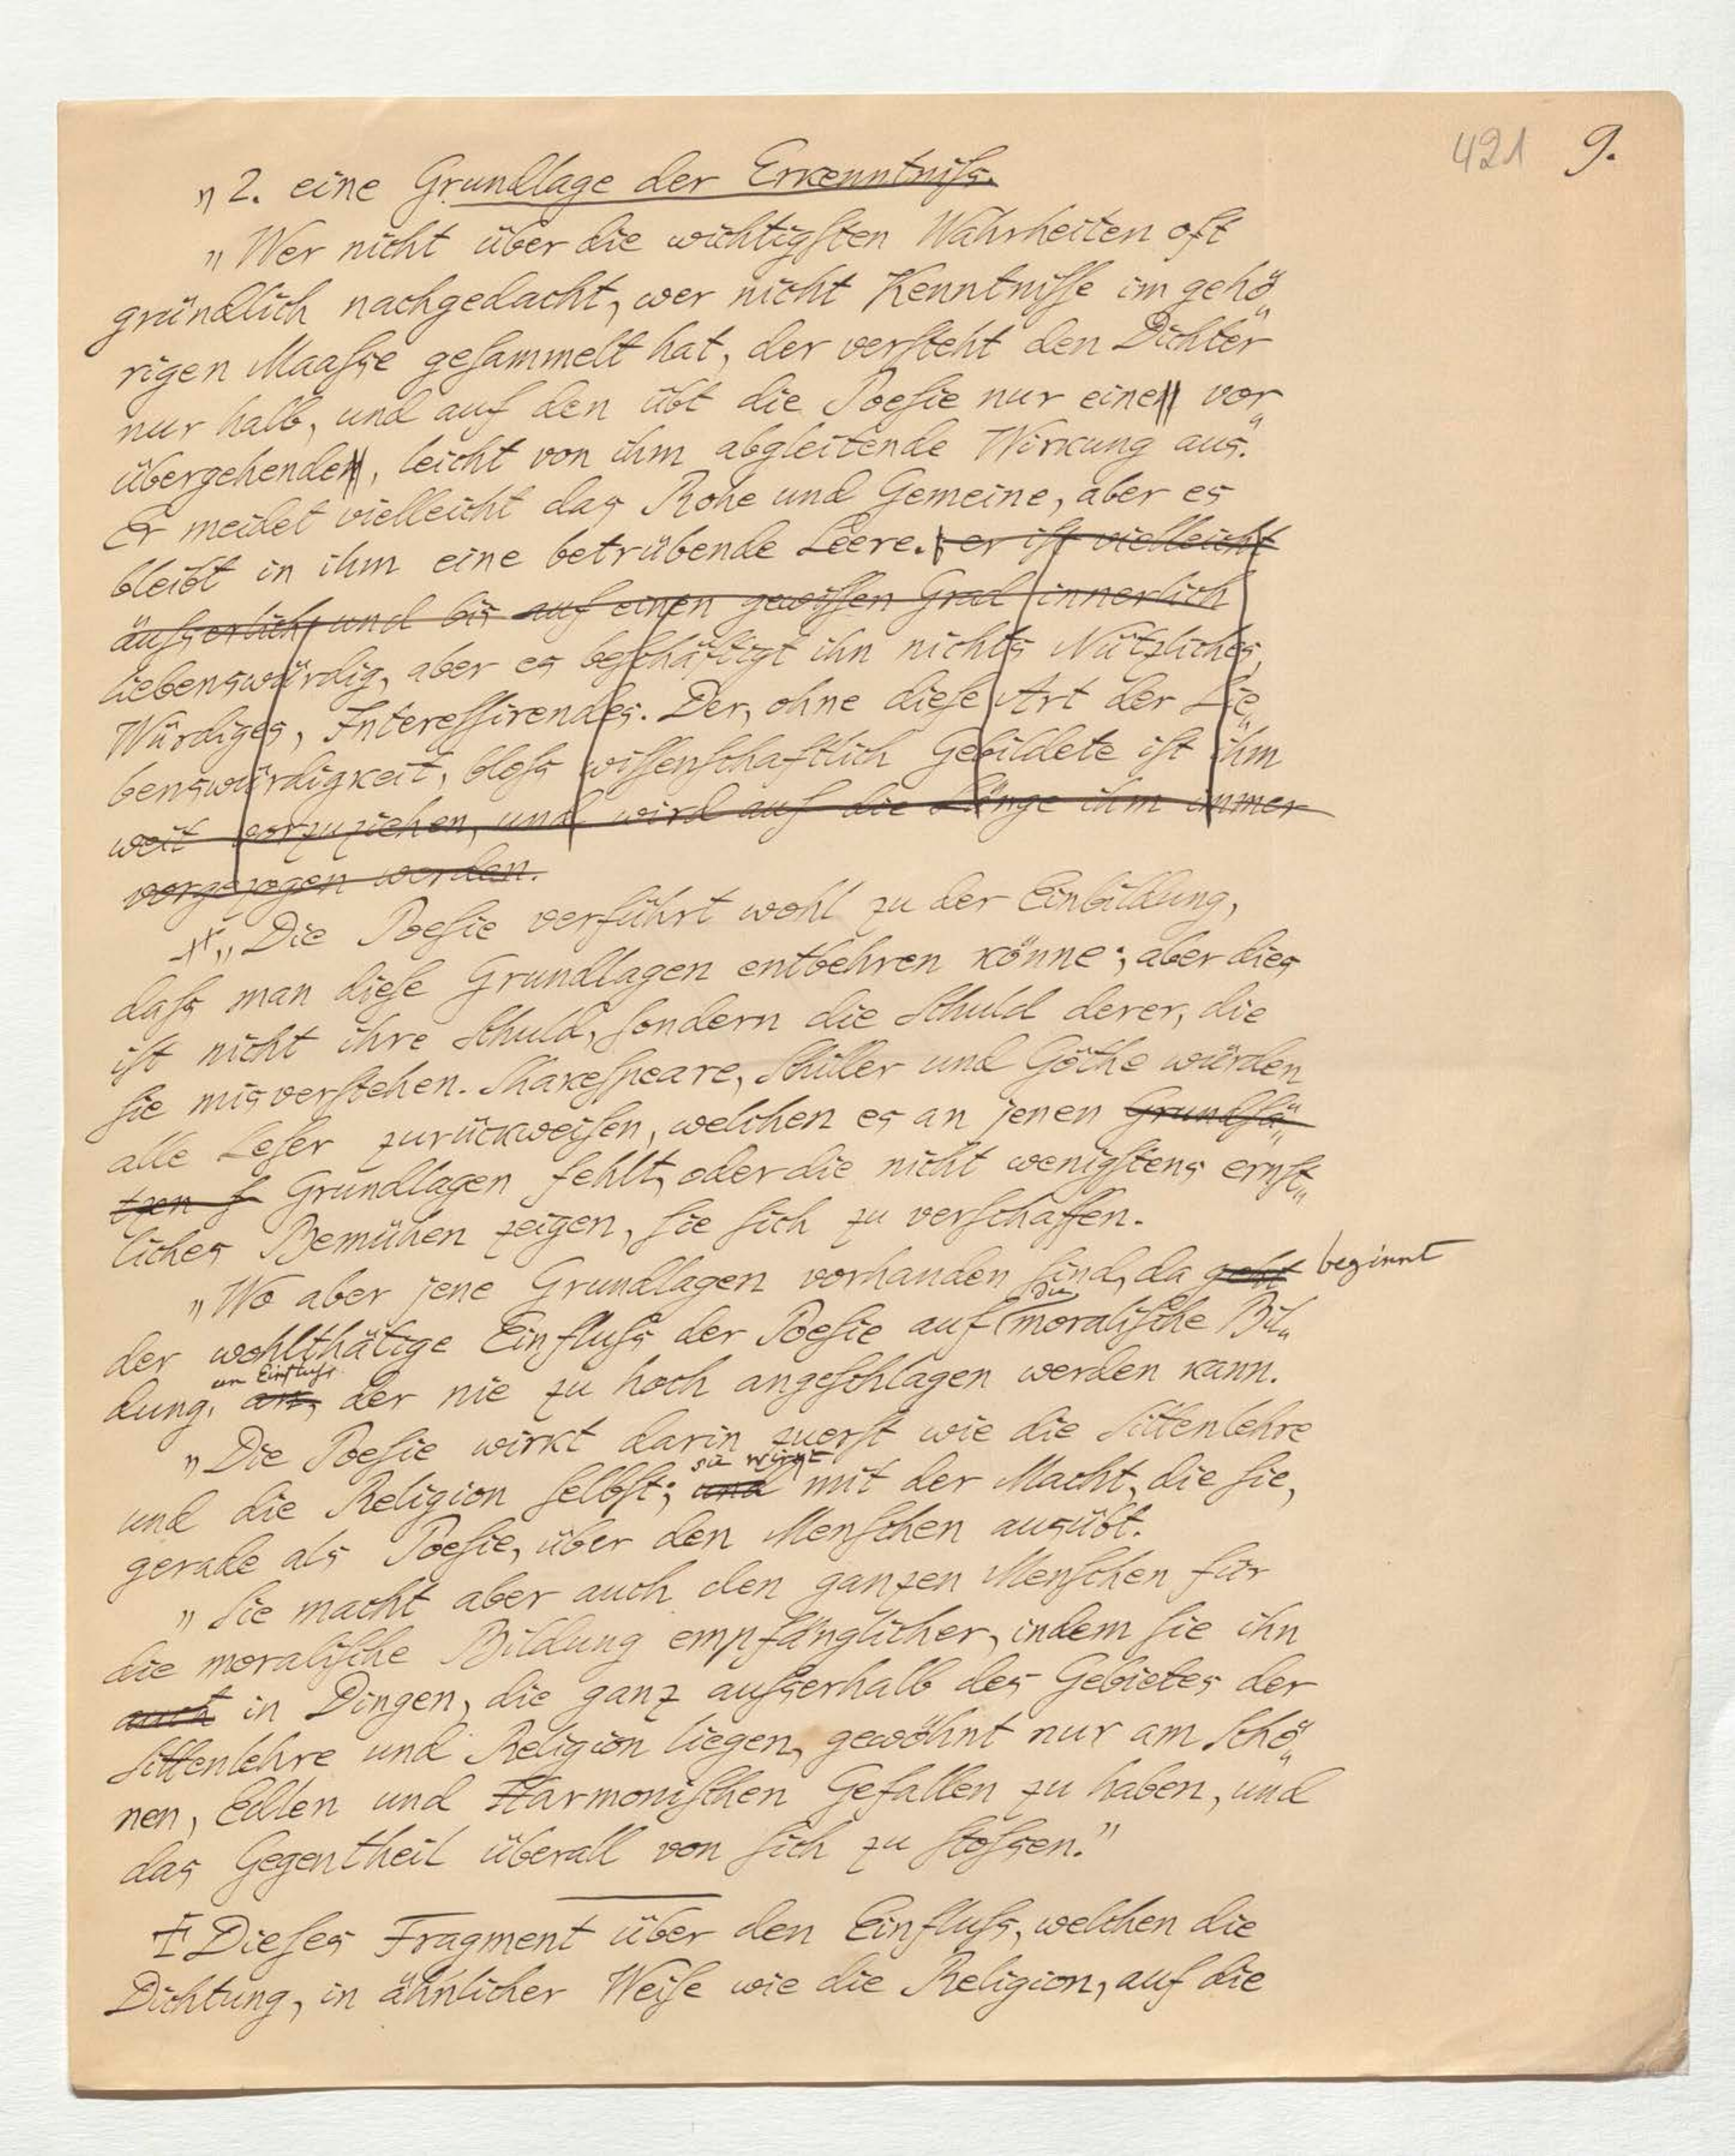 421 9.
„ 2. eine Grundlage der Erkenntniſs.
„ Wer nicht über die wichtigſten Wahrheiten oft
gründlich nachgedacht, wer nicht Kenntniſſe im gehö„
rigen Maaſse geſammelt hat, der verſteht den Dichter
nur halb, und auf den übt die Poeſie nur eine vor„
übergehende, leicht von ihm abgleitende Wirkung aus.
Er meidet vielleicht das Rohe und Gemeine, aber es
bleibt in ihm eine betrübende Leere. er iſt vielleicht
äuſserlich, und bis auf einen gewiſſen Grad innerlich
liebenswürdig, aber es beſchäftigt ihn nichts Nützliches,
Würdiges, Intereſſirendes. Der, ohne dieſe Art der Lie„
benswürdigkeit, bloſs wiſſenſchaftlich Gebildete iſt ihm
weit vorzuziehen, und wird auf die Länge ihm immer
vorgezogen werden.
„ Die Poeſie verführt wohl zu der Einbildung,
daſs man dieſe Grundlagen entbehren könne; aber dies
iſt nicht ihre Schuld, ſondern die Schuld derer, die
ſie misverſtehen. Shakeſpeare, Schiller und Göthe würden
alle Leſer zurückweiſen, welchen es an jenen Grundſä„
tzen f Grundlagen fehlt, oder die nicht wenigſtens ernſt„
liches Bemühen zeigen, ſie ſich zu verſchaffen.
„ Wo aber jene Grundlagen vorhanden ſind, da geht beginnt
der wohlthätige Einfluſs der Poeſie auf die moraliſche Bil„
dung, an, ein Einfluſs der nie zu hoch angeſchlagen werden kann.
„ Die Poeſie wirkt darin zuerſt wie die Sittenlehre
und die Religion ſelbſt; und sie wirkt mit der Macht, die ſie,
gerade als Poeſie, über den Menſchen ausübt.
„ Sie macht aber auch den ganzen Menſchen für
die moraliſche Bildung empfänglicher, indem ſie ihn
auch in Dingen, die ganz auſserhalb des Gebietes der
Sittenlehre und Religion liegen, gewöhnt nur am Schö„
nen, Edlen und Harmoniſchen Gefallen zu haben, und
das Gegentheil überall von ſich zu ſtoſsen.“
Dieſes Fragment über den Einfluſs, welchen die
Dichtung, in ähnlicher Weiſe wie die Religion, auf die